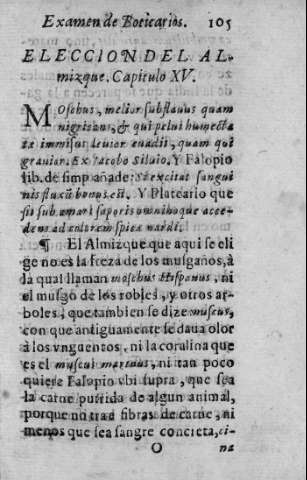 Examen de Boticarios. 105
ELECCION DEL AL-
mizque. Capitulo XV.
MOschus, melior subflauus quam
nigricans, & qui pelui humecta
tæ immisus leuior euadit, quam qui
grauior. Ex Iacobo Siluio, Y Falopio
lib. de simp añade: Si excitat sangui
nis fluxũ bonus est. Y Plateario que
sit sub amari saporis omnihoque acce-
dens ad colorem spicæ nardi.
¶ El Almizque que aqui se eli
ge no es la freza de los musgaños, à
la qual llaman moschus Hispanus, ni
el musgo de los robles, y otros ar-
boles, que tambien se dize muscus,
con que antiguamente se daua olor
à los vnguentos, ni la coralina que
es el muscus marinus, ni tan poco
quiere Falopio vbi supra, que sea
la carne putrida de algun animal,
porque no trae fibras de carne, ni
menos que sea sangre concreta, ci-
O na